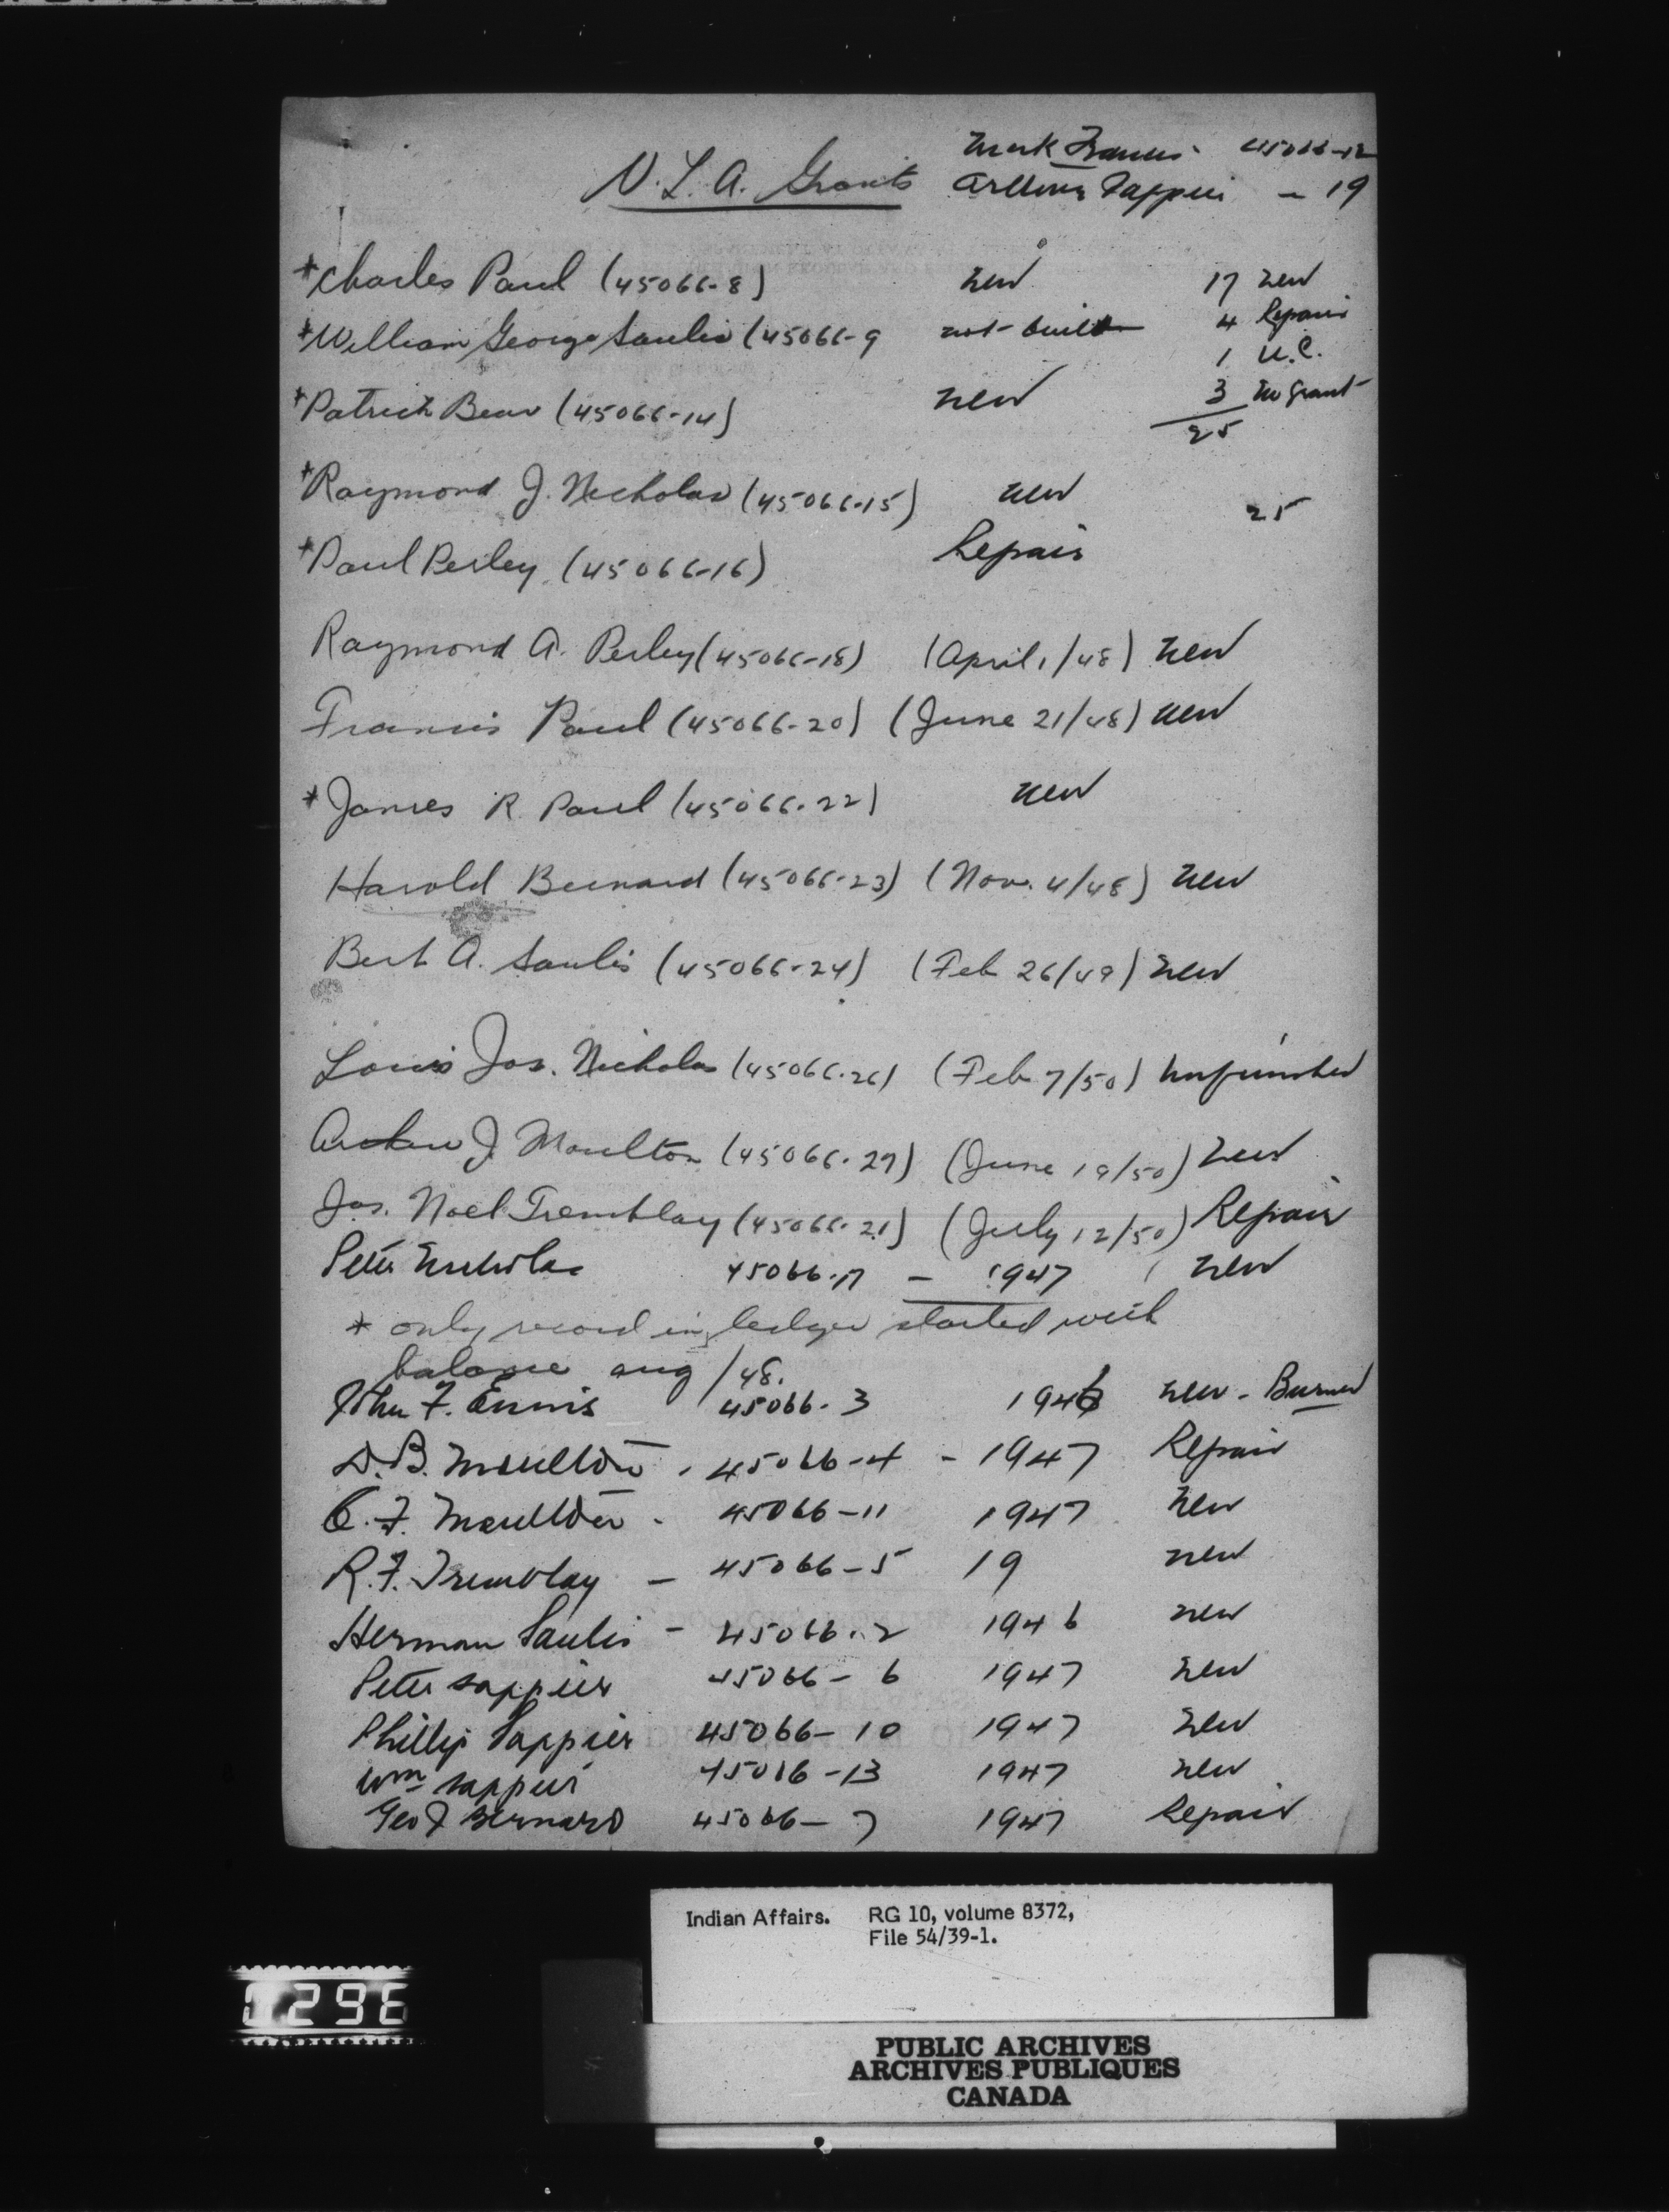 Mark Francis 45066-12
V.L.A. Grants Arthur Sappier - 19
*Charles Paul (45066-8) new 17 new
*William George Saulis (45066-9 not built 4 Repairs
1 U.C.
*Patrick Bear (45066-14) new 3 no grant
25
*Raymond J. Nicholas (45066-15) new 25
*Paul Perley (45066-16) Repair
Raymond A. Perley (45066-18) (April 1/48) new
Francis Paul (45066-20) (June 21/48) new
*James R. Paul (45066-22) new
Harold Bernard (45066-23) (Nov. 4/48) new
Bert A. Saulis (45066-24) (Feb 26/49) new
Louis Jos. Nicholas (45066-26) (Feb 7/50) unfinished
J. Moulton (45066-27) (June 19/50) new
Jos. Noel Tremblay (45066-21) (July 12/50) Repair
Peter Nicholas 45066-17 - 1947 new
* only record in ledger started with
balance aug/48.
John F. Ennis 45066-3 1946 new - Burned
D.B. Moulton - 45066-4 - 1947 Repair
C.F. Moulton - 45066-11 1947 new
R.F. Tremblay - 45066-5 19 new
Herman Saulis - 45066-2 1946 new
Peter Sappier 45066-6 1947 new
Phillip Sappier 45066-10 1947 new
Wm Sappier 45066-13 1947 new
Geo F Bernard 45066-7 1947 Repair
Indian Affairs. RG 10, volume 8372,
File 54/39-1.
296
PUBLIC ARCHIVES
ARCHIVES PUBLIQUES
CANADA